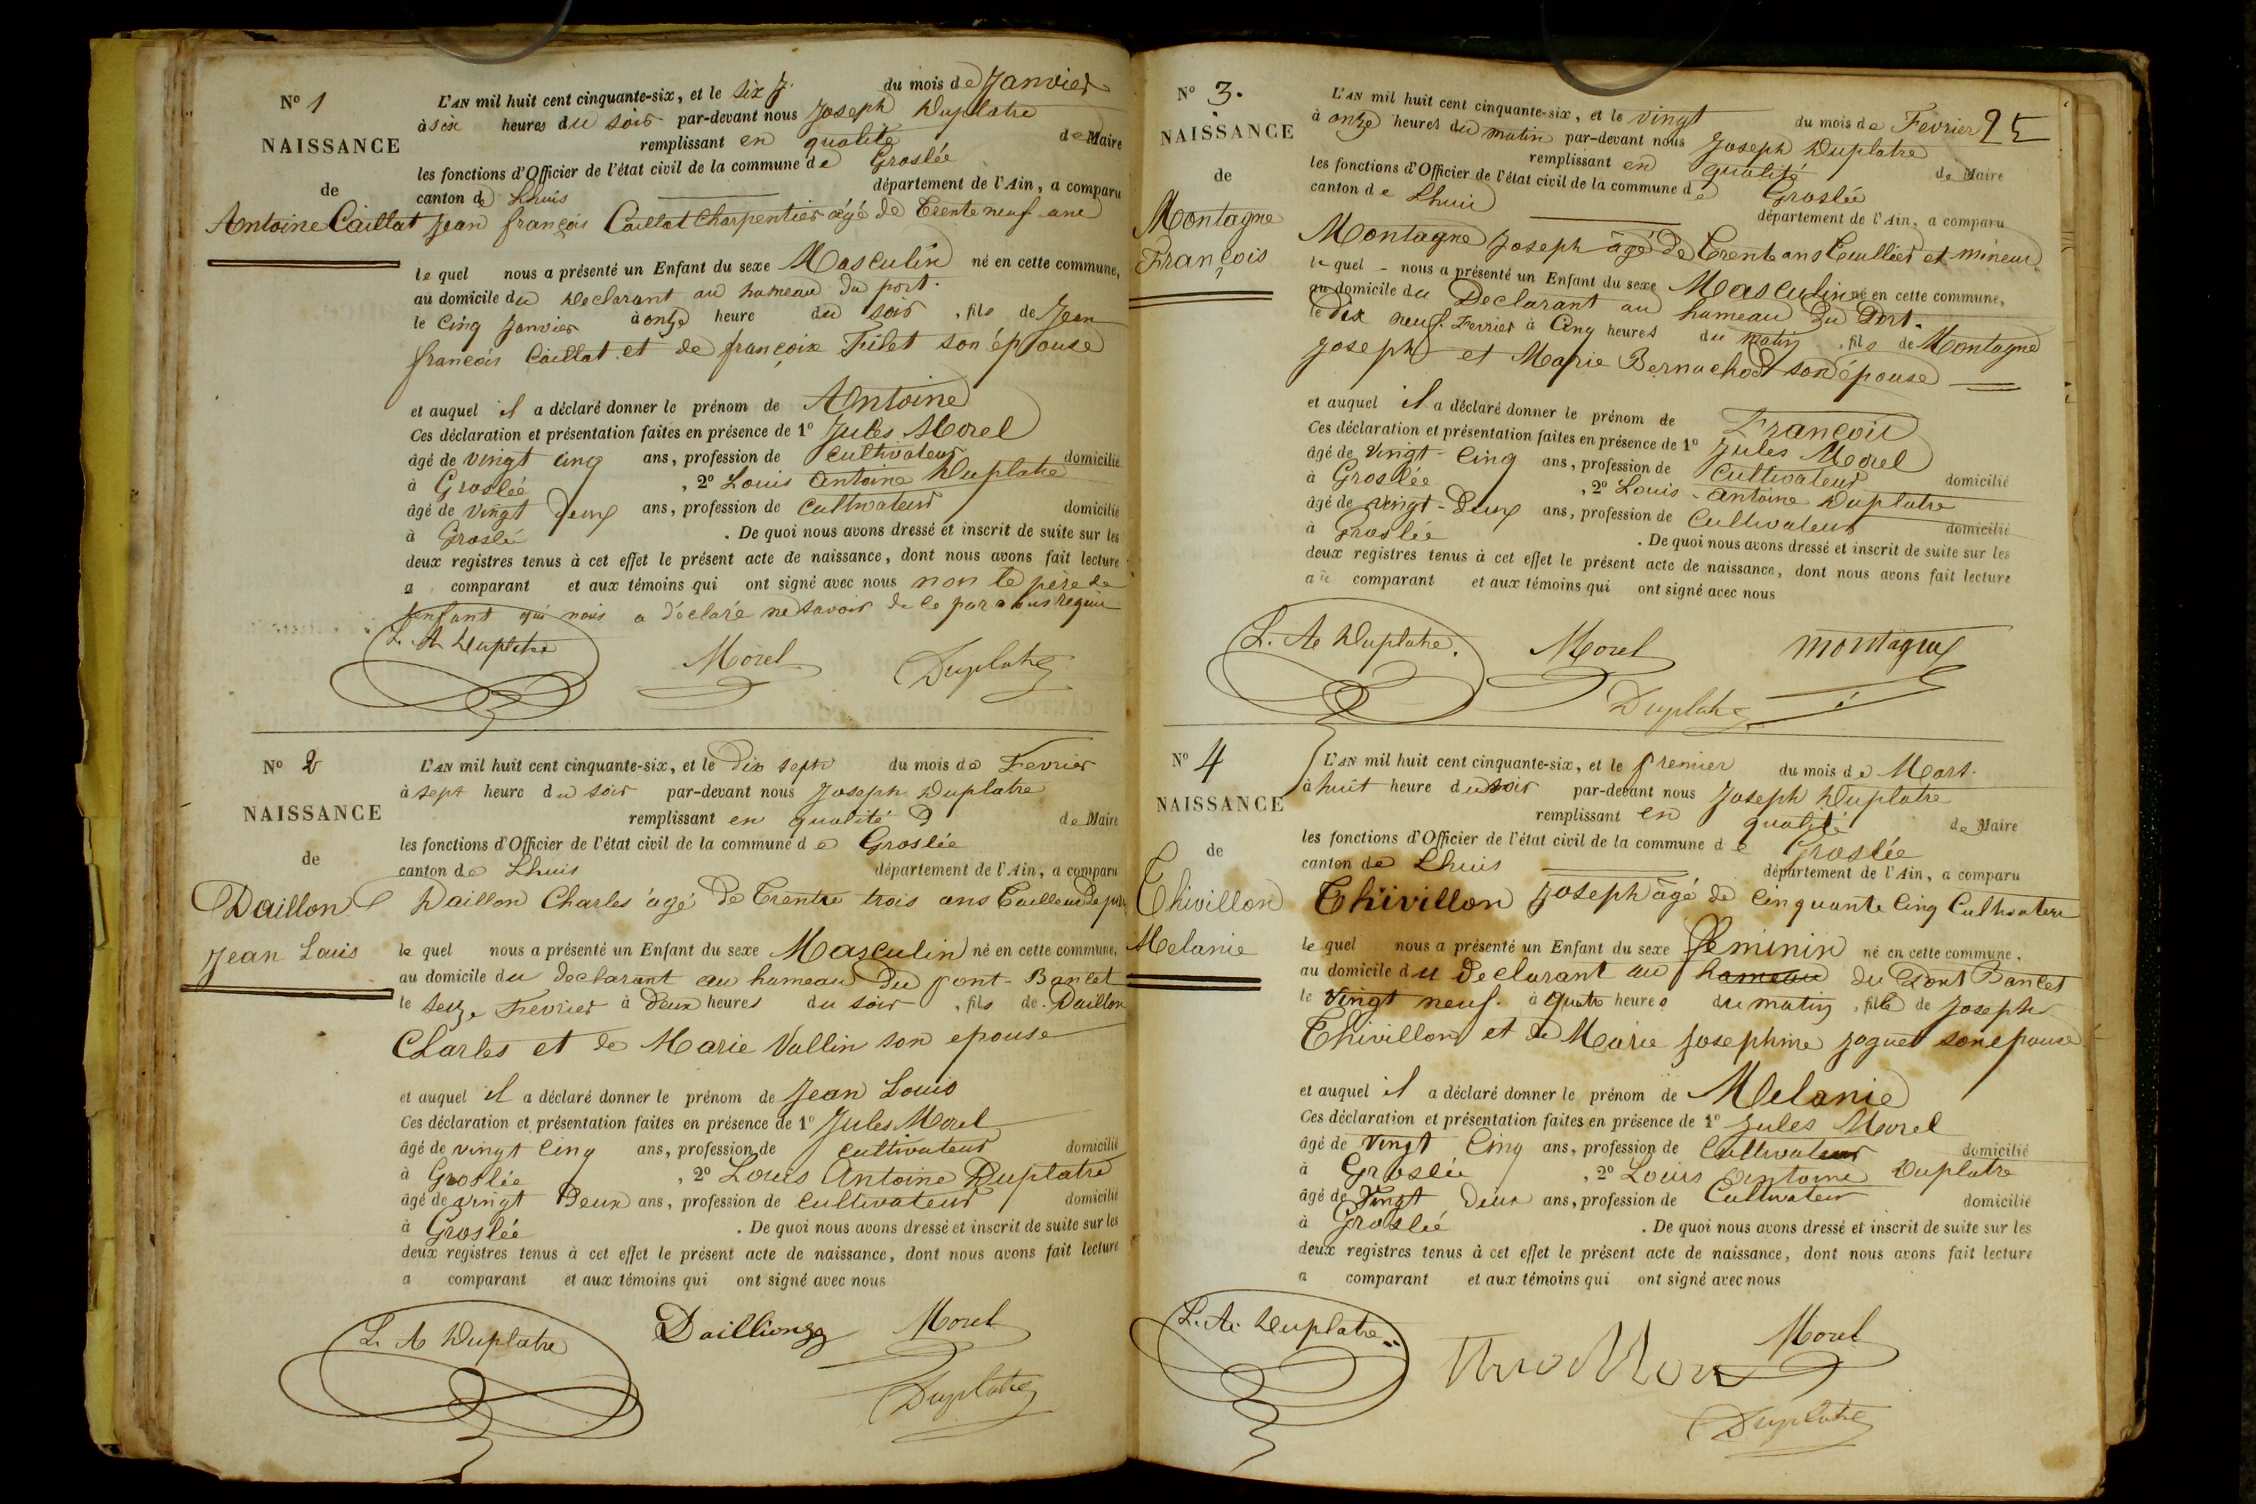 N° 1
NAISSANCE
de
Antoine Caillat
L'AN mil huit cent cinquante-six, et le six du mois de Janvier
à six heures du soir par-devant nous Joseph Duplatre
remplissant en qualité de Maire
les fonctions d'Officier de l'état civil de la commune de Groslée
canton de Lhuis département de l'Ain, a comparu
Jean françois Caillat Charpentier âgé de Trente neuf ans
le quel nous a présenté un Enfant du sexe Masculin né en cette commune,
au domicile du Declarant au hameau du port.
le Cinq Janvier à onze heure du soir, fils de Jean
françois Caillat et de françoise Tulet son épouse
et auquel il a déclaré donner le prénom de Antoine
Ces déclaration et présentation faites en présence de 1° Jules Morel
âgé de vingt cinq ans, profession de Cultivateur domicilié
à Groslée, 2° Louis Antoine Duplatre
âgé de vingt deux ans, profession de Cultivateur domicilié
à Groslée. De quoi nous avons dressé et inscrit de suite sur les
deux registres tenus à cet effet le présent acte de naissance, dont nous avons fait lecture
a comparant et aux témoins qui ont signé avec nous non le père de
l'enfant qui nous a déclaré ne savoir de ce par nous requis
L. A Duplatre Morel Duplatre
N° 2
NAISSANCE
de
Daillon
Jean Louis
L'AN mil huit cent cinquante-six, et le dix sept du mois de Fevrier
à sept heure du soir par-devant nous Joseph Duplatre
remplissant en qualité D de Maire
les fonctions d'Officier de l'état civil de la commune de Groslée
canton de Lhuis département de l'Ain, a comparu
Daillon Charles âgé de Trentre trois ans Tailleur de
le quel nous a présenté un Enfant du sexe Masculin né en cette commune,
au domicile du declarant au hameau Du pont-Bancet
le seize Fevrier à Deux heures du soir, fils de Daillon
Charles et de Marie Vallin son epouse
et auquel il a déclaré donner le prénom de Jean Louis
Ces déclaration et présentation faites en présence de 1° Jules Morel
âgé de vingt cinq ans, profession de cultivateur domicilié
à Groslée, 2° Louis Antoine Duplatre
âgé de vingt Deux ans, profession de cultivateur domicilié
à Groslée. De quoi nous avons dressé et inscrit de suite sur les
deux registres tenus à cet effet le présent acte de naissance, dont nous avons fait lecture
a comparant et aux témoins qui ont signé avec nous
L. A Duplatre Morel
Duplatre
25
N° 3.
NAISSANCE
de
Montagne
François
L'AN mil huit cent cinquante-six, et le vingt du mois de Fevrier
à onze heures du matin par-devant nous Joseph Duplatre
remplissant en qualité de Maire
les fonctions d'Officier de l'état civil de la commune de Groslée
canton de Lhuis département de l'Ain, a comparu
Montagne Joseph âgé de Trente ans et mineur
le quel nous a présenté un Enfant du sexe Masculin né en cette commune,
au domicile du Declarant au hameau Du Port.
le Dix neuf Fevrier à Cinq heures du matin, fils de Montagne
Joseph et Marie Bernachod son épouse
et auquel il a déclaré donner le prénom de François
Ces déclaration et présentation faites en présence de 1° Jules Morel
âgé de vingt-cinq ans, profession de Cultivateur domicilié
à Groslée, 2° Louis-Antoine Duplatre
âgé de vingt-Deux ans, profession de Cultivateur domicilié
à Groslée. De quoi nous avons dressé et inscrit de suite sur les
deux registres tenus à cet effet le présent acte de naissance, dont nous avons fait lecture
au comparant et aux témoins qui ont signé avec nous
L. A Duplatre. Morel montagne
Duplatre
N° 4
NAISSANCE
de
Thivillon
Melanie
L'AN mil huit cent cinquante-six, et le premier du mois de Mars.
à huit heure du soir par-devant nous Joseph Duplatre
remplissant en qualité de Maire
les fonctions d'Officier de l'état civil de la commune de Groslée
canton de Lhuis département de l'Ain, a comparu
Thivillon Joseph âgé de cinquante cinq Cultivateur
le quel nous a présenté un Enfant du sexe Feminin né en cette commune,
au domicile du Declarant au hameau du Pont Bancet
le vingt neuf. à quatre heures du matin, fille de Joseph
Thivillon et de Marie Josephine Joguet son epouse
et auquel il a déclaré donner le prénom de Melanie
Ces déclaration et présentation faites en présence de 1° Jules Morel
âgé de vingt Cinq ans, profession de Cultivateur domicilié
à Groslée, 2° Louis Antoine Duplatre
âgé de Vingt Deux ans, profession de Cultivateur domicilié
à Groslée. De quoi nous avons dressé et inscrit de suite sur les
deux registres tenus à cet effet le présent acte de naissance, dont nous avons fait lecture
a comparant et aux témoins qui ont signé avec nous
L. A. Duplatre. Morel
Duplatre